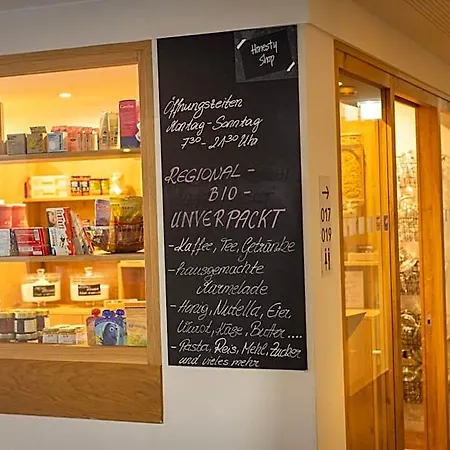 Honesty
Shop
Öffnungszeiten
Montag - Sonntag
7³⁰ - 21³⁰ Uhr
REGIONAL -
BIO -
UNVERPACKT
- Kaffee, Tee, Getränke
- hausgemachte
Marmelade
- Honig, Nutella, Eier
Wurst, Käse, Butter ....
- Pasta, Reis, Mehl, Zucker
und vieles mehr
017
019